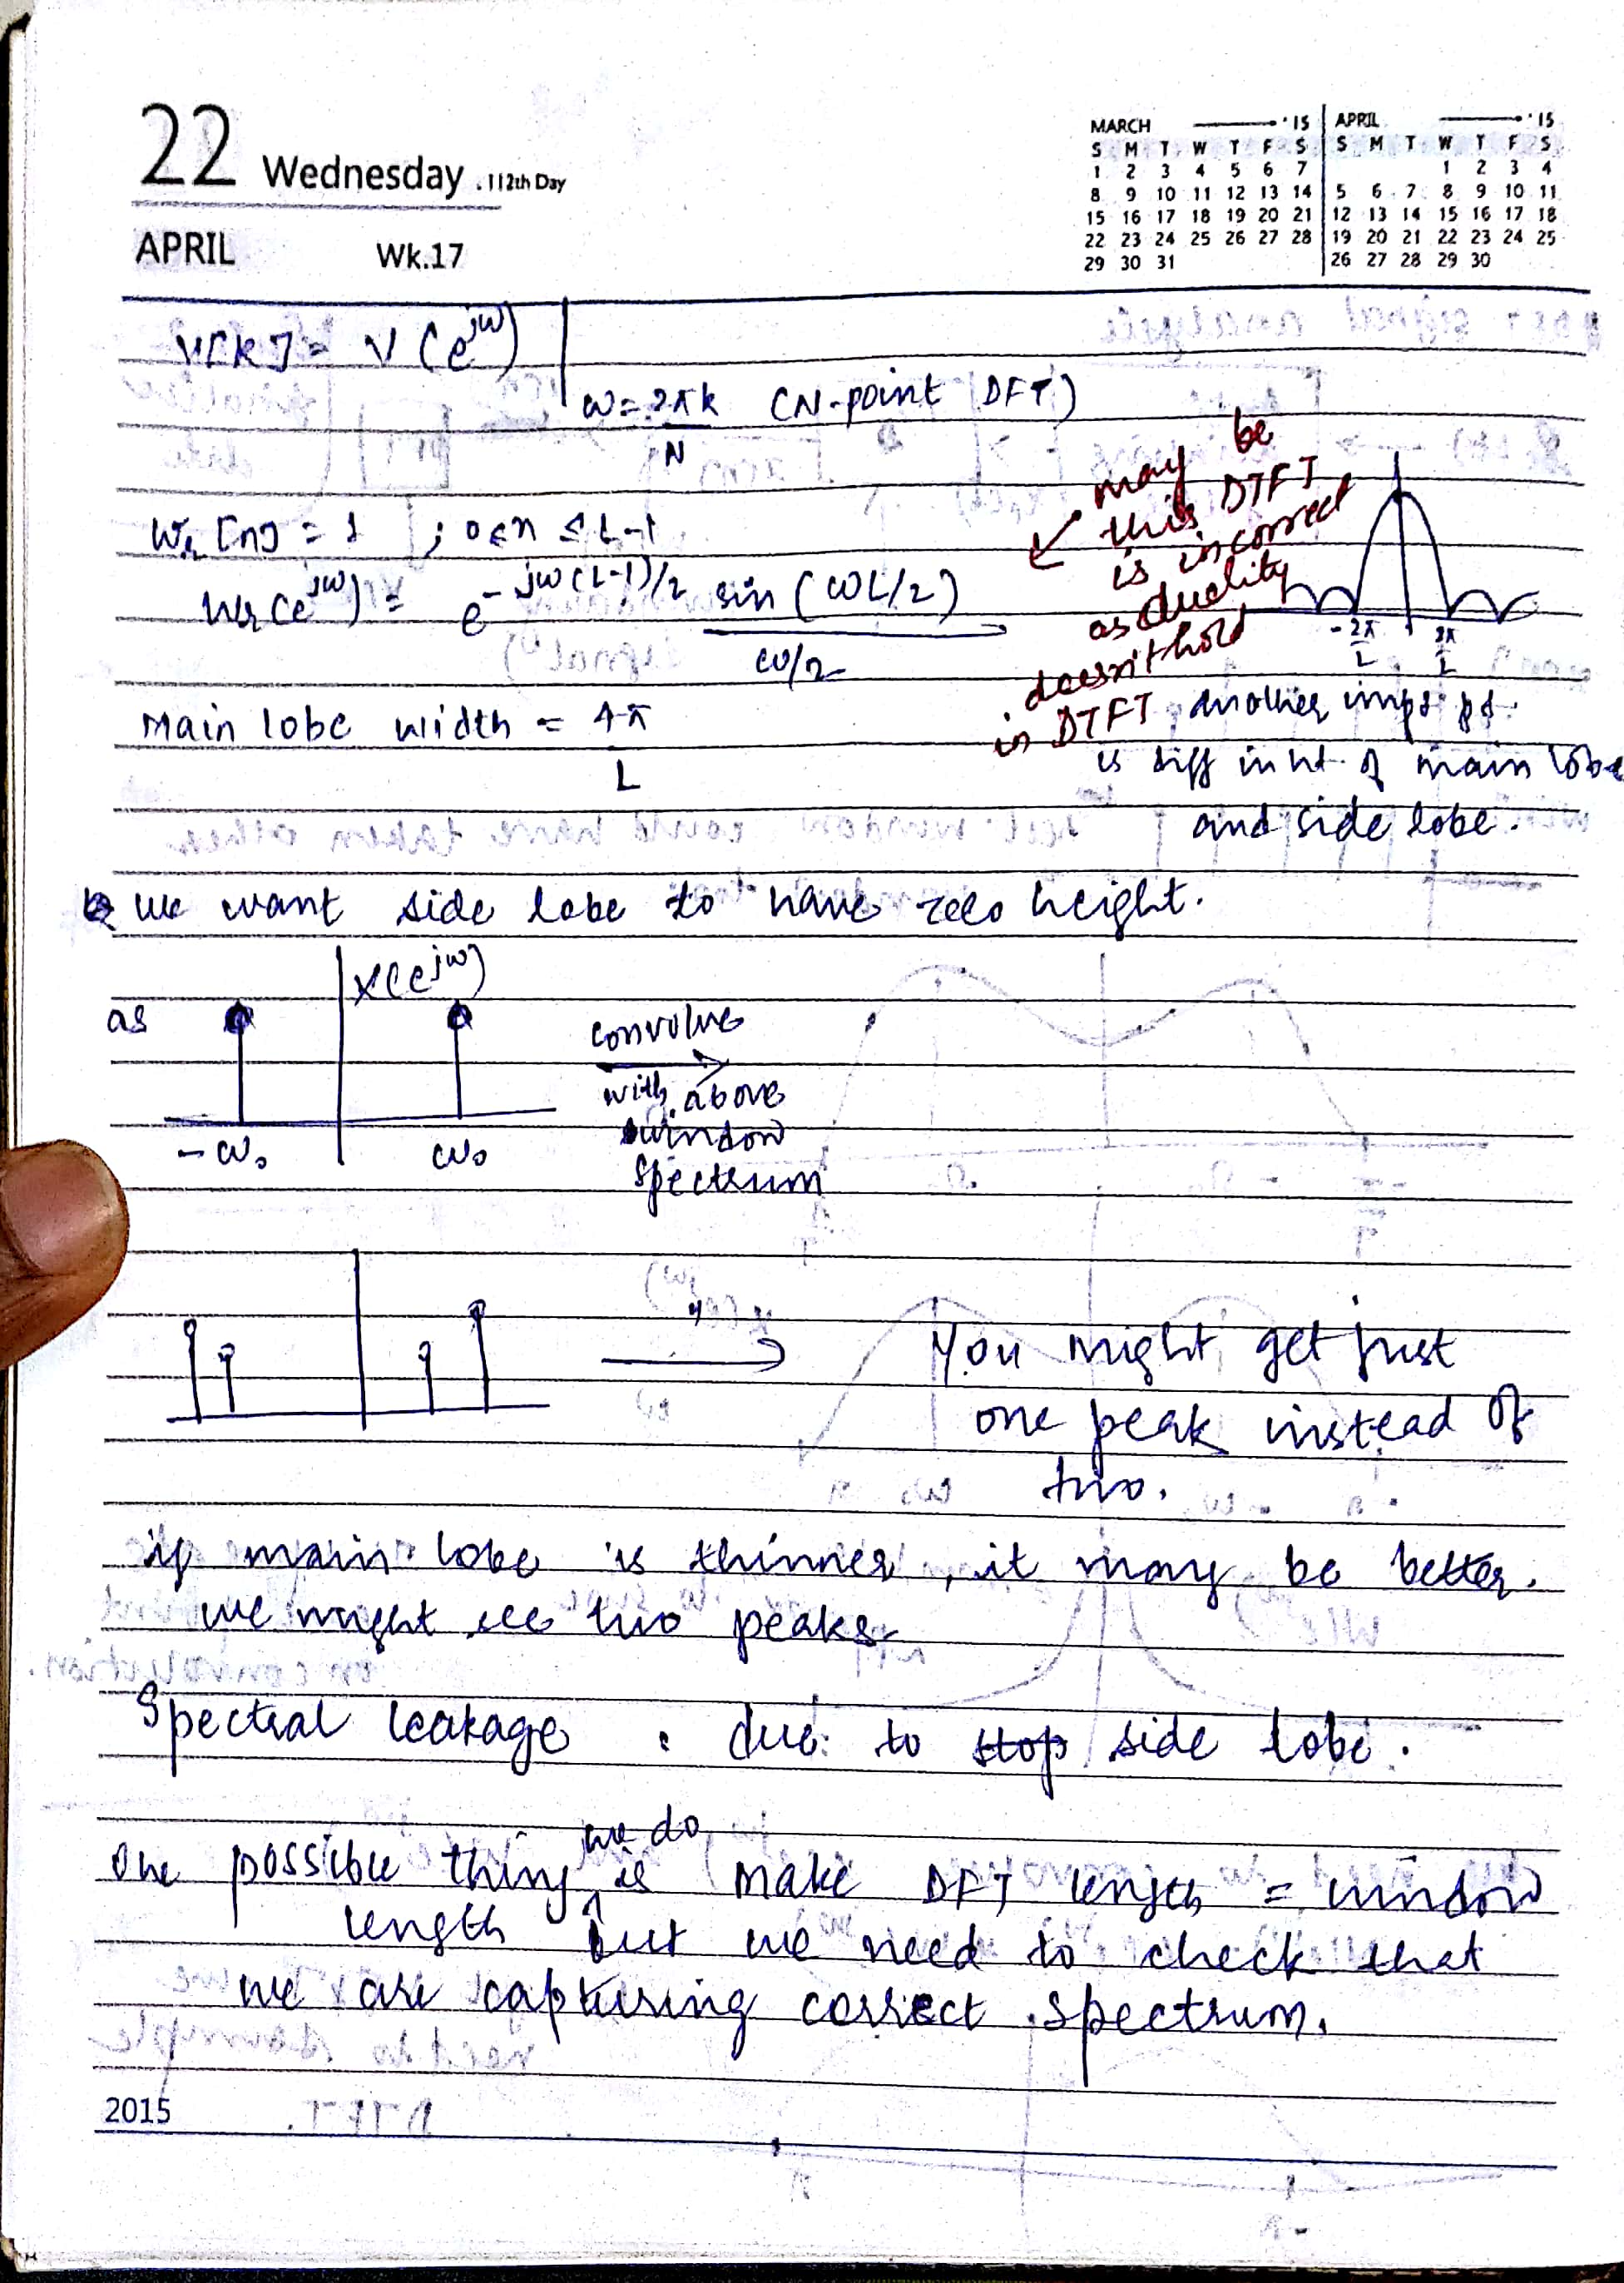 22 Wednesday . 112th Day
APRIL Wk.17
MARCH '15
S M T W T F S
1 2 3 4 5 6 7
8 9 10 11 12 13 14
15 16 17 18 19 20 21
22 23 24 25 26 27 28
29 30 31
APRIL '15
S M T W T F S
1 2 3 4
5 6 7 8 9 10 11
12 13 14 15 16 17 18
19 20 21 22 23 24 25
26 27 28 29 30
V[k] = V(e^{jω}) |
ω = 2πk/N (N-point DFT)
w_r[n] = 1 ; 0 ≤ n ≤ L-1
W_r(e^{jω}) = e^{-jω(L-1)/2} sin(ωL/2)
ω/2
may be
this DTFT
is incorrect
as duality
doesn't hold
in DTFT
-2π/L 2π/L
Main lobe width = 4π/L
another imp. pt.
is diff in ht. of main lobe
and side lobe.
we want side lobe to have zero height.
as X(e^{jω})
-ω₀ ω₀
convolve
with above
window
spectrum
You might get just
one peak instead of
two.
if main lobe is thinner, it may be better.
we might see two peaks
Spectral leakage : due to stop side lobe.
One possible thing we do is make DFT length = window
length but we need to check that
we are capturing correct spectrum.
2015